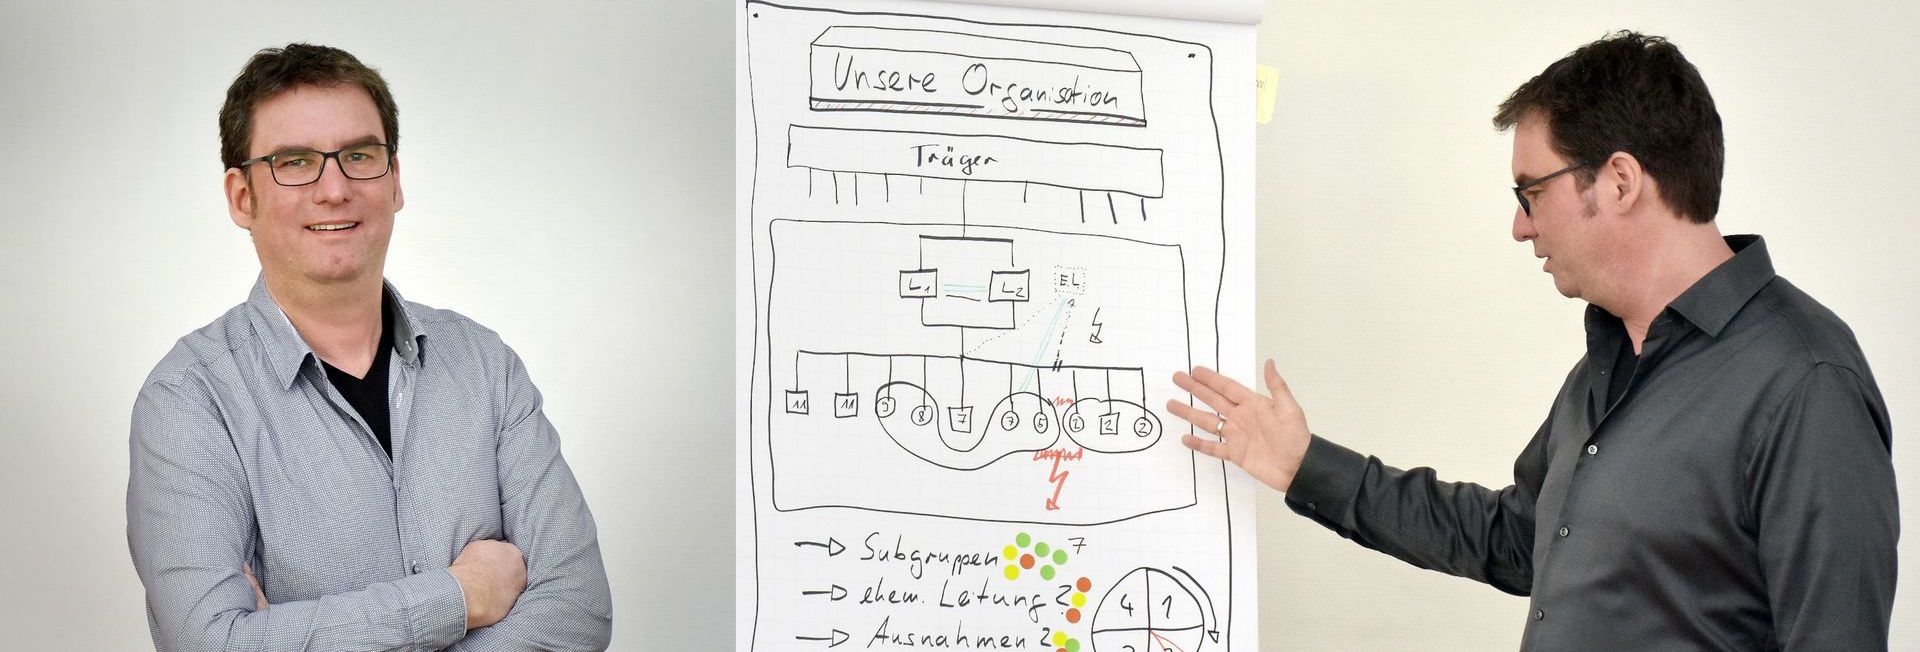 Unsere Organisation
Träger
L1 L2 E.L
11 11 9 8 7 7 6 2 2 2
Subgruppen 7
ehem. Leitung 2
Ausnahmen 2
4 1